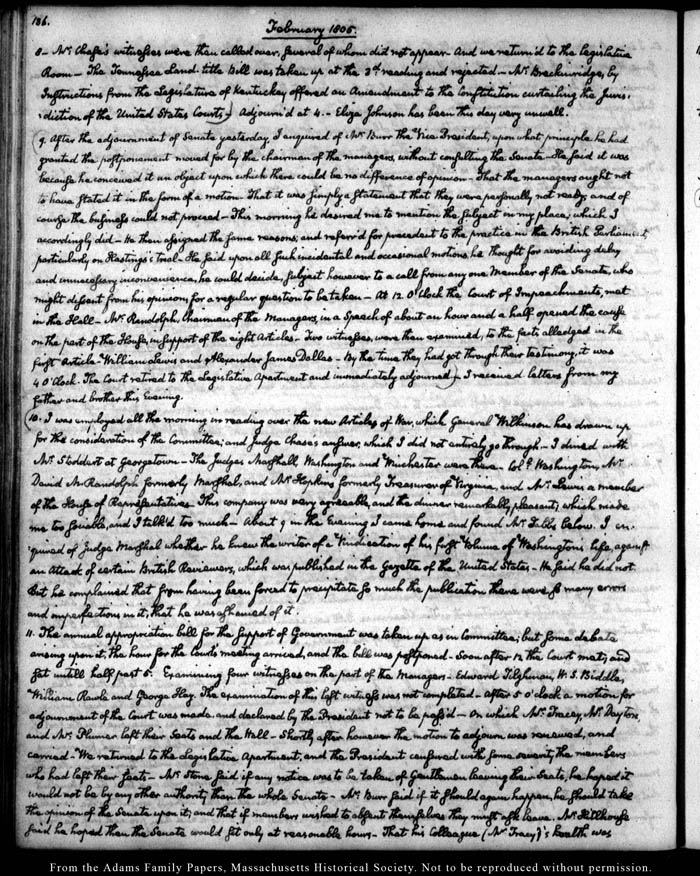 186.
February 1805.
8 – Mr. Chase's witnesses were then called over, several of whom did not appear – And we return'd to the Legislative
Room – The Tennessee Land title Bill was taken up at the 3d. reading and rejected – Mr. Breckinridge, by
Instructions from the Legislature of Kentucky offered an Amendment to the Constitution curtailing the Juris-
diction of the United States Courts –) Adjourn'd at 4. – Eliza Johnson has been this day very unwell.
(9. After the adjournment of Senate yesterday, I enquired of Mr. Burr the Vice President, upon what principle he had
granted the postponement moved for by the chairman of the managers, without consulting the Senate – He said it was
because he conceived it an object upon which there could be no difference of opinion – That the managers ought not
to have stated it in the form of a motion – That it was simply a statement that they were personally not ready, and of
course the business could not proceed – This morning he desired me to mention the subject in my place, which I
accordingly did – He then assigned the same reasons, and referr'd for precedent to the practice in the British Parliament,
particularly on Hastings's trial – He said upon all such incidental and occasional motions, he thought for avoiding delay
and unnecessary inconvenience, he could decide, subject however to a call from any one Member of the Senate, who
might dissent from his opinion for a regular question to be taken – At 12 O'Clock the Court of Impeachments, met
in the Hall – Mr. Randolph, Chairman of the Managers, in a Speech of about an hour and a half opened the cause
on the part of the House, in support of the eight Articles – Two witnesses, were then examined, to the facts alledged in the
first Article – William Lewis and Alexander James Dallas – By the time they had got through their testimony, it was
4 O'Clock. The Court retired to the Legislative Apartment and immediately adjourned) – I received letters from my
father and brother this Evening.
(10. I was employed all the morning in reading over the new Articles of War, which General Wilkinson has drawn up
for the consideration of the Committee; and Judge Chase's answer, which I did not entirely go through – I dined with
Mr. Stoddert at Georgetown – The Judges Marshall, Washington and Winchester were there – Coll. Washington, Mr.
David M. Randolph formerly Marshal, and Mr. Hopkins formerly Treasurer of Virginia, and Mr. Lewis a member
of the House of Representatives – This company was very agreeable, and the dinner remarkably pleasant, which made
me too sociable, and I talk'd too much – About 9 in the Evening I came home and found Mr. below. I en-
quired of Judge Marshal whether he knew the writer of a Vindication of his first Volume of Washington's life, against
an Attack of certain British Reviewers, which was published in the Gazette of the United States – He said he did not
But he complained that from having been forced to precipitate so much the publication there were so many errors
and imperfections in it, that he was ashamed of it.
11. The annual appropriation bill for the support of Government was taken up as in Committee; but some debate
arising upon it, the hour for the Court's meeting arrived, and the bill was postponed – Soon after 12 the Court met, and
sat untill half past 5. Examining four witnesses on the part of the Managers – Edward Tilghman, W. S. Biddle,
William Rawle and George Hay. The examination of this last witness was not completed – After 5 o'clock a motion for
adjournment of the Court was made and declared by the President not to be pass'd – On which Mr. Tracey, Mr. Dayton,
and Mr. Plumer left their Seats and the Hall – Shortly after however the motion to adjourn was renewed, and
carried – We returned to the Legislative Apartment, and the President censured with some severity the members
who had left their seats – Mr. Stone said if any notice was to be taken of Gentlemen leaving their Seats, he hoped it
would not be by any other authority than the whole Senate – Mr. Burr said if it should again happen, he should take
the opinion of the Senate upon it; and that if members wished to absent themselves they must ask leave. Mr. Hillhouse
said he hoped then the Senate would set only at reasonable hours – That his Colleague (Mr. Tracy)'s health was
From the Adams Family Papers, Massachusetts Historical Society. Not to be reproduced without permission.